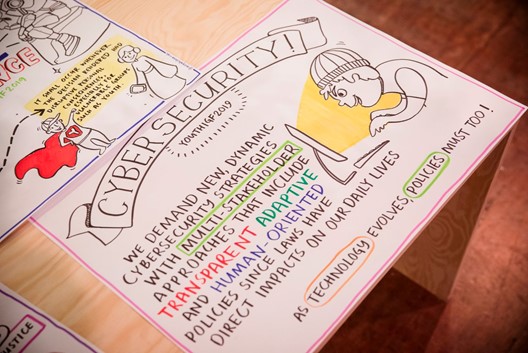 CYBERSECURITY!
YOUTHIGF2019
WE DEMAND NEW, DYNAMIC
CYBERSECURITY STRATEGIES
WITH MULTI-STAKEHOLDER
APPROACHES THAT INCLUDE
TRANSPARENT ADAPTIVE
AND HUMAN-ORIENTED
POLICIES SINCE LAWS HAVE
DIRECT IMPACTS ON OUR DAILY LIVES
AS TECHNOLOGY EVOLVES, POLICIES MUST TOO!
IT SHALL OCCUR WHENEVER
JUSTICE